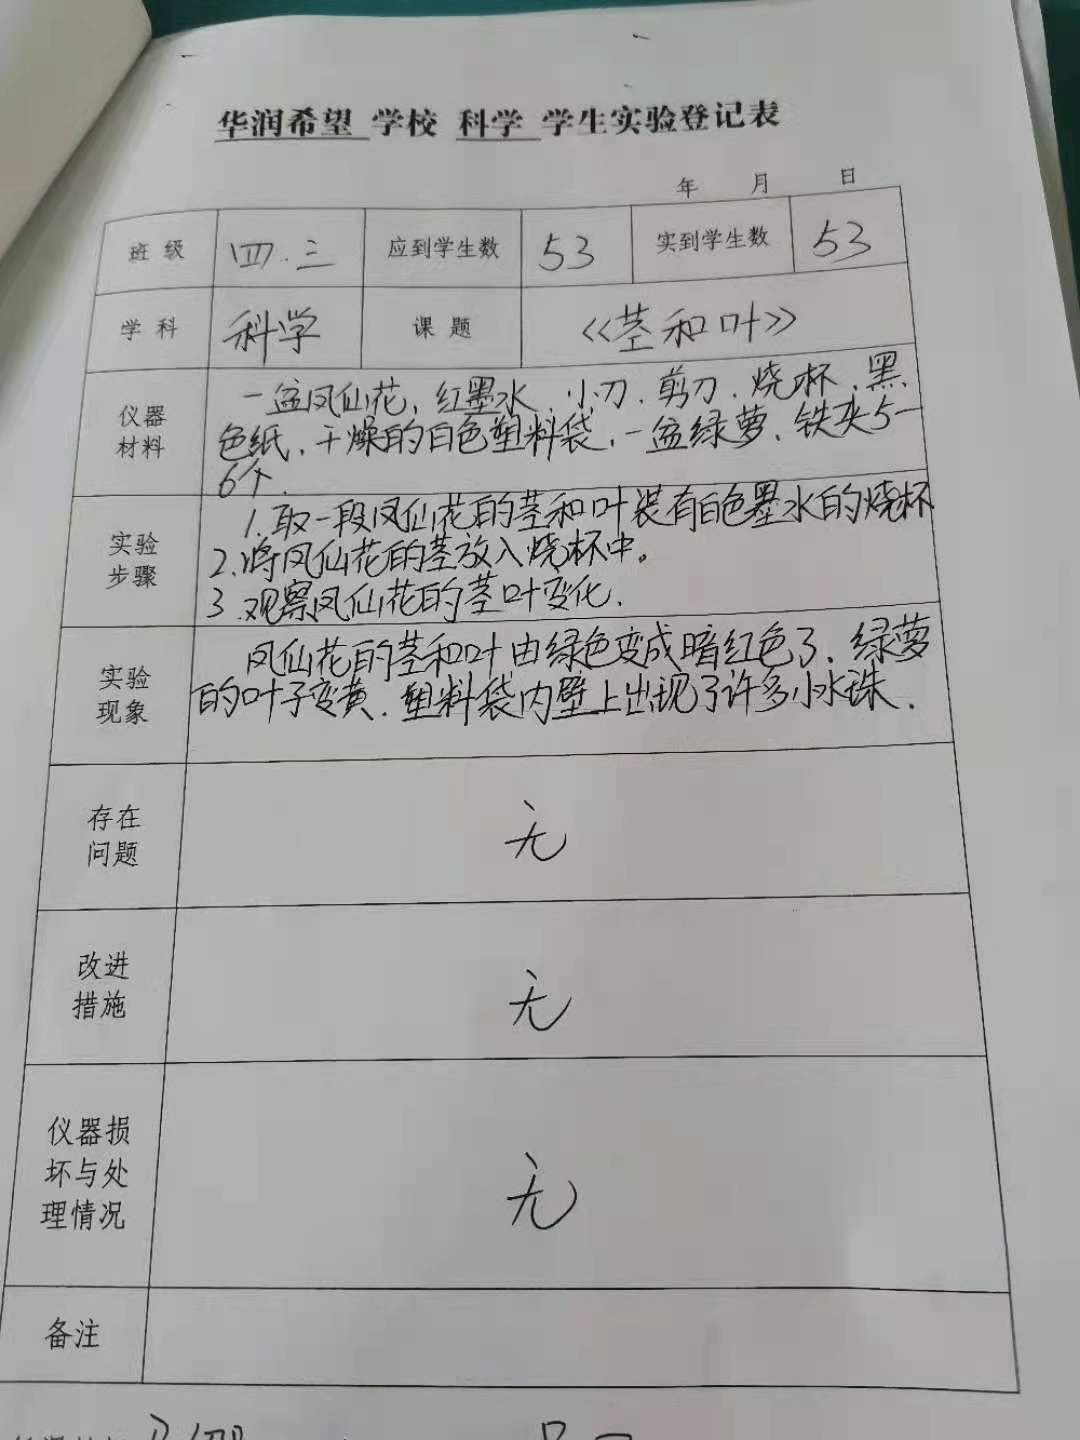 华润希望 学校 科学 学生实验登记表
年 月 日
班级 四.三 应到学生数 53 实到学生数 53
学科 科学 课题 《茎和叶》
仪器材料
一盆凤仙花、红墨水、小刀、剪刀、烧杯、黑
色纸、干燥的白色塑料袋、一盆绿萝、铁夹5一
6个.
实验步骤
1.取一段凤仙花的茎和叶装有白色墨水的烧杯
2.将凤仙花的茎放入烧杯中。
3.观察凤仙花的茎叶变化.
实验现象
凤仙花的茎和叶由绿色变成暗红色了、绿萝
的叶子变黄.塑料袋内壁上出现了许多小水珠.
存在问题 无
改进措施 无
仪器损坏与处理情况 无
备注